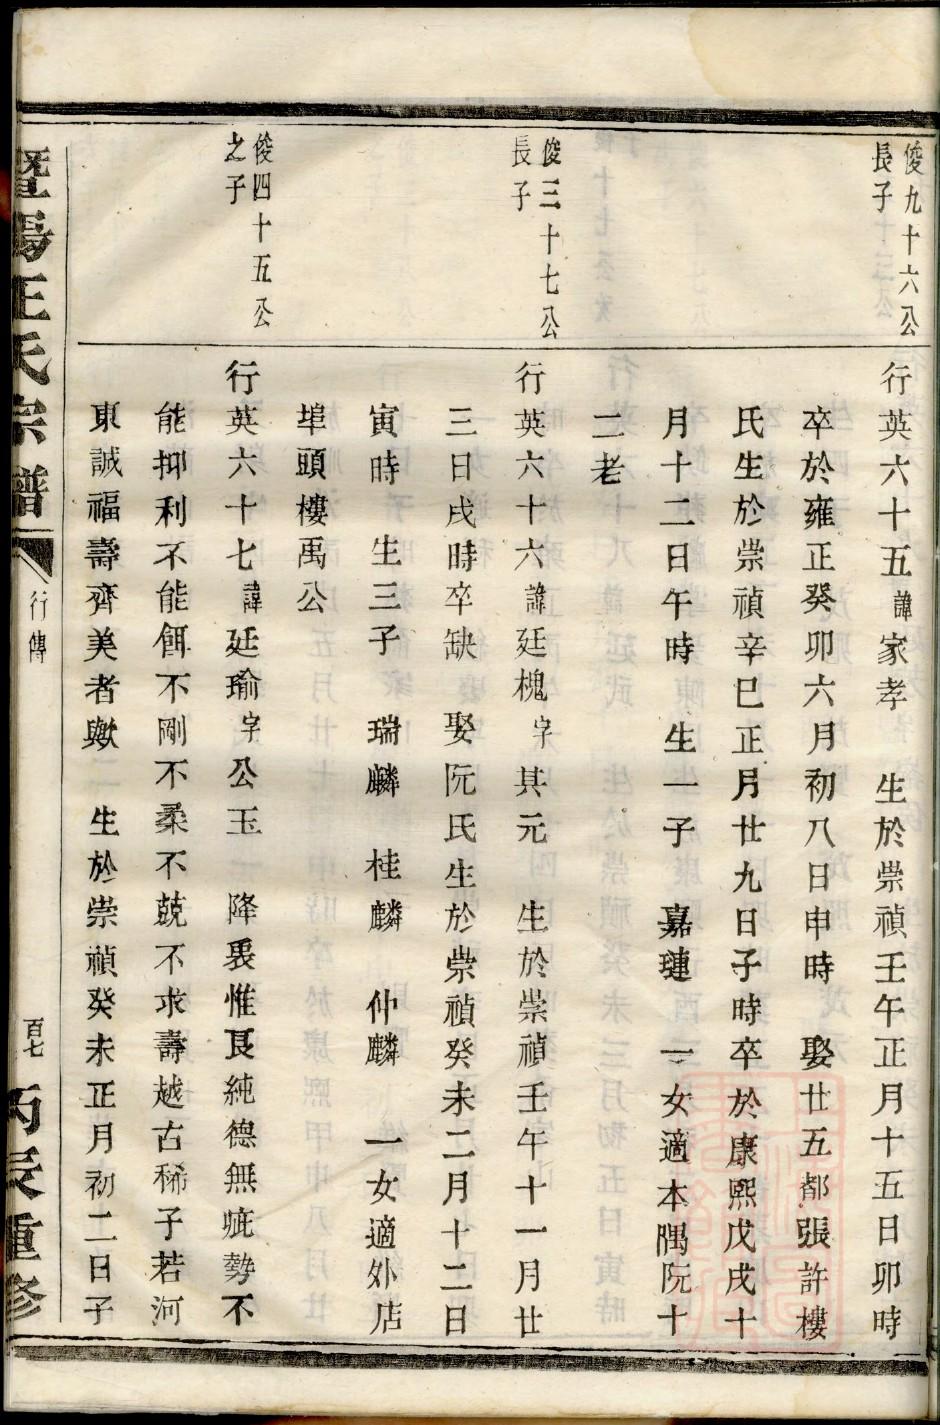 俊九十六公
長子
行英六十五諱家孝　生於崇禎壬午正月十五日卯時
卒於雍正癸卯六月初八日申時　娶廿五都張許樓
氏生於崇禎辛巳正月廿九日子時卒於康熙戊戌十
月十二日午時　生一子　嘉璉　一女適本隅阮十
二老
俊三十七公
長子
行英六十六諱廷槐字其元　生於崇禎壬午十一月廿
三日戌時卒缺　娶阮氏生於崇禎癸未二月十二日
寅時　生三子　瑞麟　桂麟　仲麟　一女適外店
埠頭樓禹公
俊四十五公
之子
行英六十七諱廷瑜字公玉　降衷惟良純德無疵勢不
能抑利不能餌不剛不柔不競不求壽越古稀子若河
東誠福壽齊美者歟　生於崇禎癸未正月初二日子
暨陽王氏宗譜
行傳
百七
丙辰重修